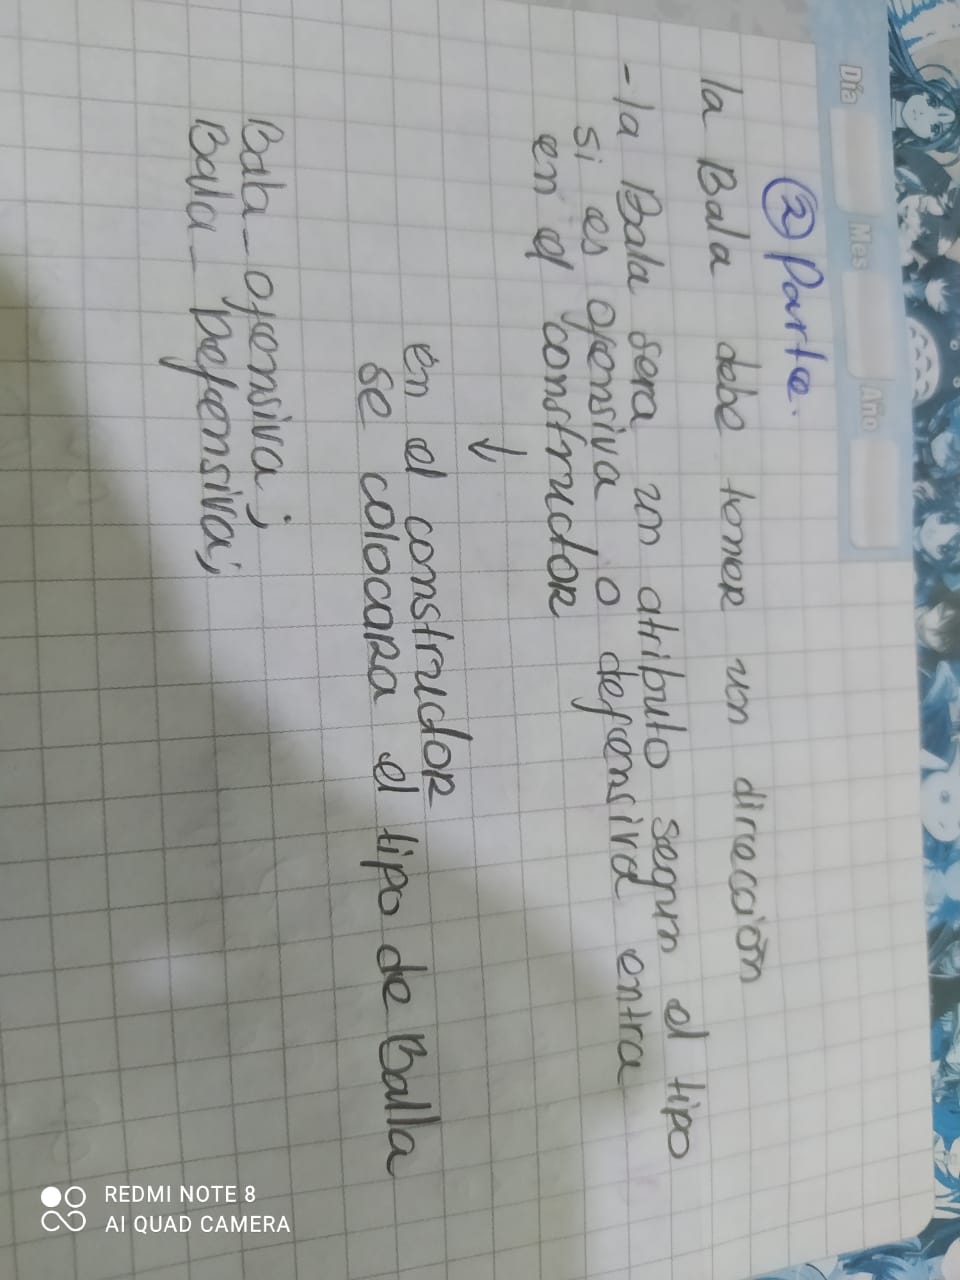 Día Mes Año
② Parte.
la Bala debe tener un dirección
- la Bala sera un atributo segun el tipo
si es ofensiva, o defensiva entra
en el constructor
↓
en el constructor
se colocara el tipo de Balla
Bala_ofensiva;
Bala_Defensiva;
REDMI NOTE 8
AI QUAD CAMERA